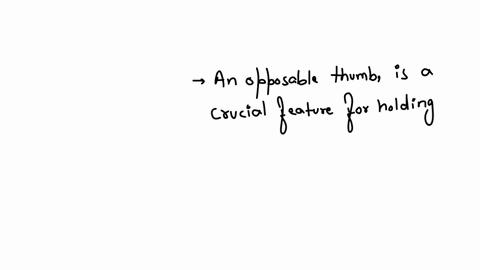 → An opposable thumb, is a
crucial feature for holding